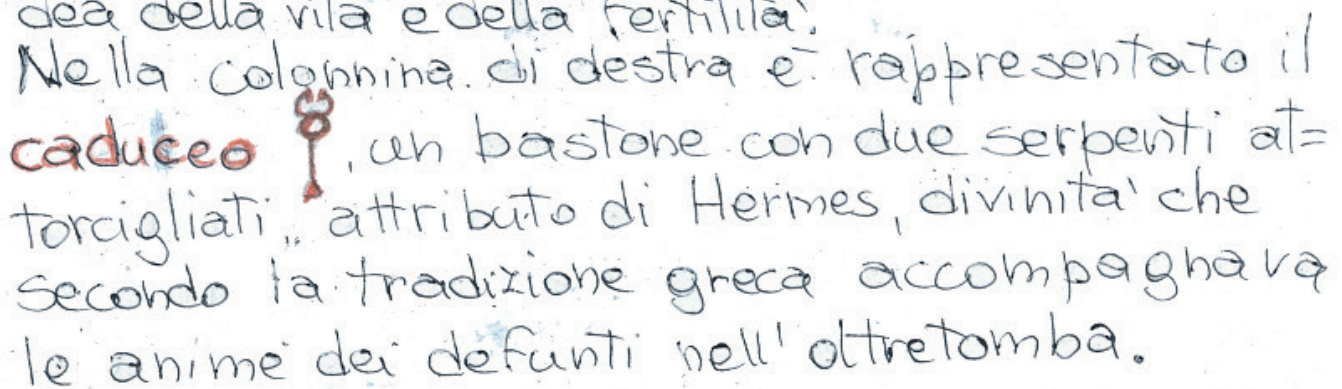 dea della vita e della fertilità.
Nella colonnina di destra è rappresentato il
caduceo , un bastone con due serpenti at=
torcigliati, attributo di Hermes, divinità che
secondo la tradizione greca accompagnava
le anime dei defunti nell'oltretomba.